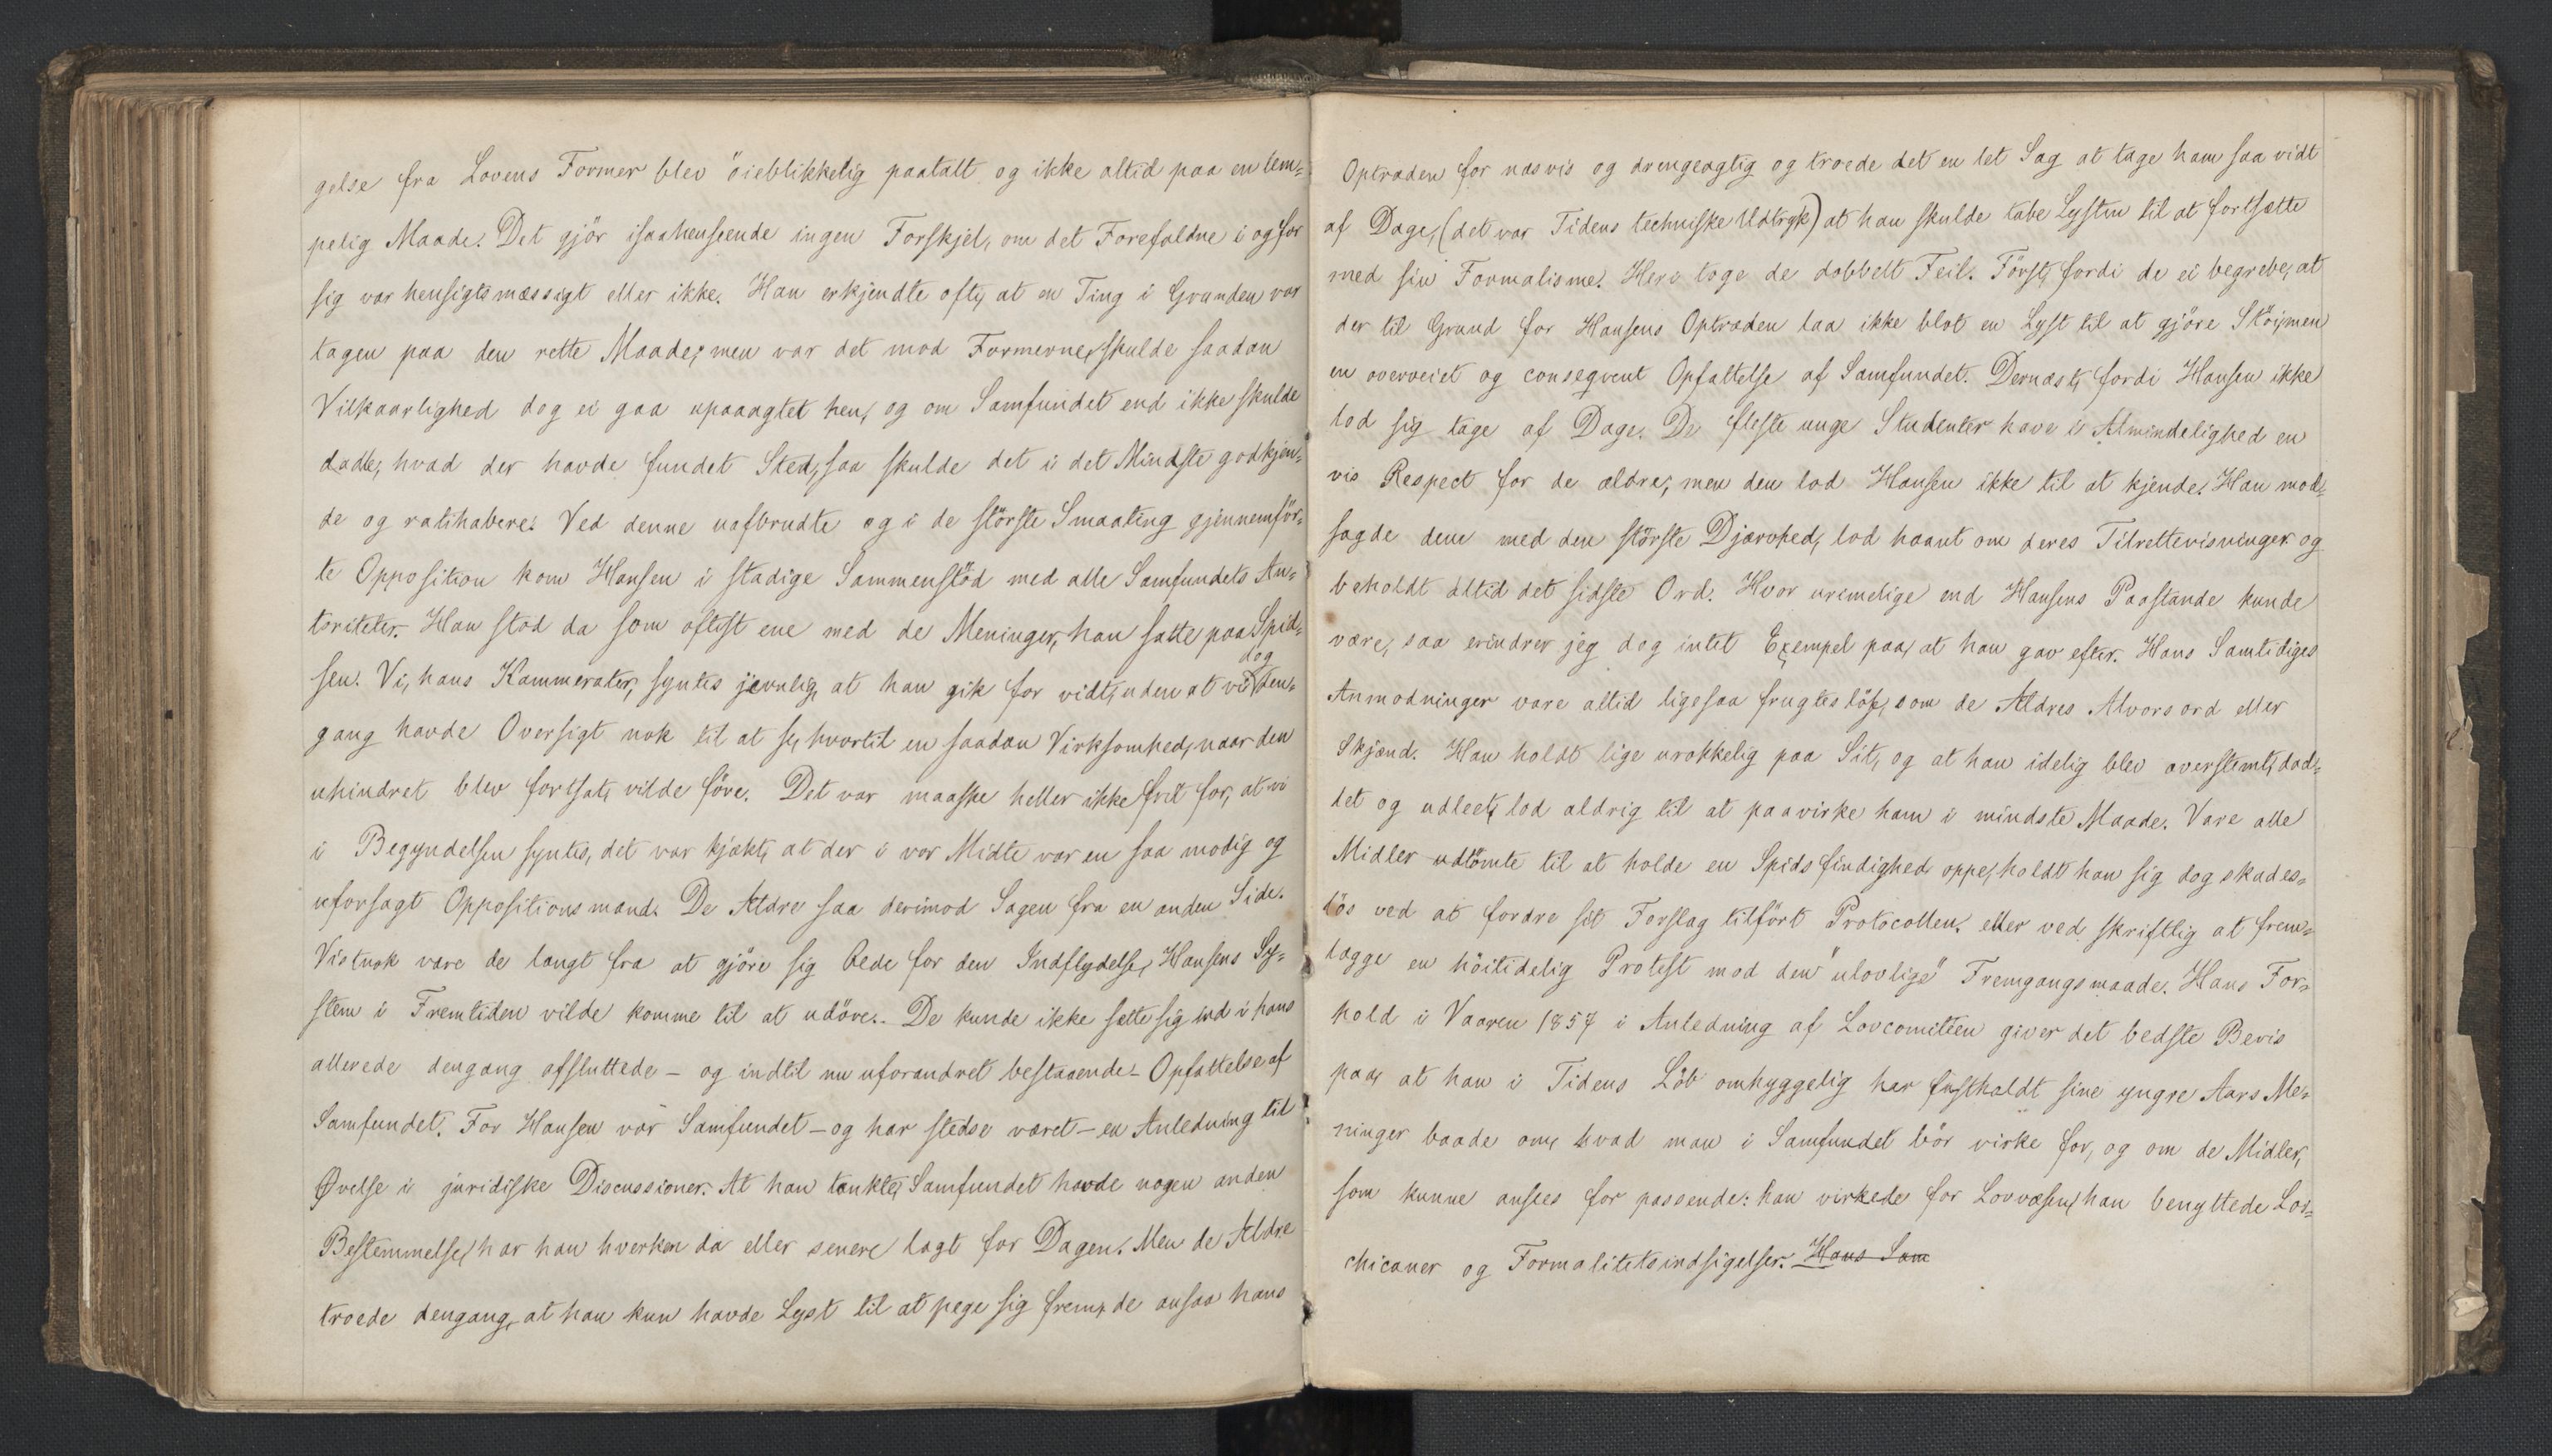 gelse fra Lovens Former blev öieblikkelig paatalt og ikke altid paa en lem-
pelig Maade. Det gjör isaahenseende ingen Forskjel, om det Forefaldne i og for
sig var hensigtsmæssigt eller ikke. Han erkjendte ofte, at en Ting i Grunden var
tagen paa den rette Maade; men var det mod Formerne, skulde saadan
Vilkaarlighed dog ei gaa upaaagtet hen, og om Samfundet end ikke skulde
dadle, hvad der havde fundet Sted, saa skulde det i det Mindste godkjen-
de og ratihabere. Ved denne uafbrudte og i de störste Smaating gjennemför-
te Opposition kom Hansen i stadige Sammenstöd med alle Samfundets Au-
toriteter. Han stod da som oftest ene med de Meninger, han satte paa Spid-
sen. Vi, hans Kammerater, syntes jevnlig, at han gik for vidt, uden at vi dog den-
gang havde Oversigt nok til at se, hvortil en saadan Virksomhed, naar den
uhindret blev fortsat, vilde före. Det var maaske heller ikke frit for, at vi
i Begyndelsen syntes, det var kjækt, at der i vor Midte var en saa modig og
uforsagt Oppositionsmand. De Ældre saa derimod Sagen fra en anden Side.
Vistnok vare de langt fra at gjöre sig Rede for den Indflydelse, Hansens Sy-
stem i Fremtiden vilde komme til at udöve. De kunde ikke sætte sig ind i hans
allerede dengang afsluttede – og indtil nu uforandret bestaaende – Opfattelse af
Samfundet. For Hansen var Samfundet – og har stedse været – en Anledning til
Øvelse i juridiske Discussioner. At han tænkte, Samfundet havde nogen anden
Bestemmelse, har han hverken da eller senere lagt for Dagen. Men de Ældre
troede dengang, at han kun havde Lyst til at pege sig frem, de ansaa hans
Optræden for næsvis og drengeagtig og troede det en let Sag at tage ham saa vidt
af Dage, (det var Tidens techniske Udtryk) at han skulde tabe Lysten til at fortsætte
med sin Formalisme. Heri toge de dobbelt Feil. Först, fordi de ei begrebe, at
der til Grund for Hansens Optræden laa ikke blot en Lyst til at gjöre Stöi, men
en overveiet og conseqvent Opfattelse af Samfundet. Dernæst, fordi Hansen ikke
lod sig tage af Dage. De fleste unge Studenter have i Almindelighed en
vis Respect for de ældre; men den lod Hansen ikke til at kjende. Han mod-
sagde dem med den störste Djærvhed, lod haant om deres Tilrettevisninger og
beholdt altid det sidste Ord. Hvor urimelige end Hansens Paastande kunde
være, saa erindrer jeg dog intet Exempel paa, at han gav efter. Hans Samtidiges
Anmodninger vare altid ligesaa frugteslöse, som de Ældres Alvorsord eller
Skjænd. Han holdt lige urokkelig paa Sit, og at han idelig blev overstemt, dad-
let og udleet, lod aldrig til at paavirke ham i mindste Maade. Vare alle
Midler udtömte til at holde en Spidsfindighed oppe, holdt han sig dog skades-
lös ved at fordre sit Forslag tilfört Protocollen, eller ved skriftlig at frem-
lægge en höitidelig Protest mod den "ulovlige" Fremgangsmaade. Hans For-
hold i Vaaren 1857 i Anledning af Lovcomiteen giver det bedste Bevis
paa, at han i Tidens Löb omhyggelig har fastholdt sine yngre Aars Me-
ninger baade om, hvad man i Samfundet bör virke for, og om de Midler,
som kunne ansees for passende: han virkede for Lovvæsen, han benyttede Lov-
chicaner og Formalitetsindsigelser. Hans Sam